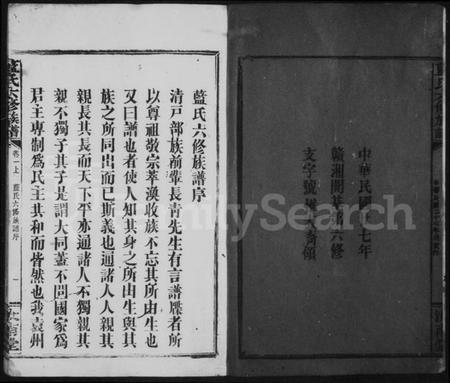 中華民國十七年
贛湘閩基諸六修
支字號
領
藍氏六修族譜序
清戸部族前輩長靑先生有言譜牒者所
以尊祖敬宗萃渙收族不忘其所由生也
又曰譜也者使人知其身之所由生與其
族之所同出而已斯義也通諸人人親其
親長其長而天下平亦通諸人不獨親其
親不獨子其子是謂大同蓋不問國家爲
君主專制爲民主共和而皆然也我袁州
藍氏六修族譜
卷一上
藍氏六修族譜序
一
汝南堂
FamilySearch